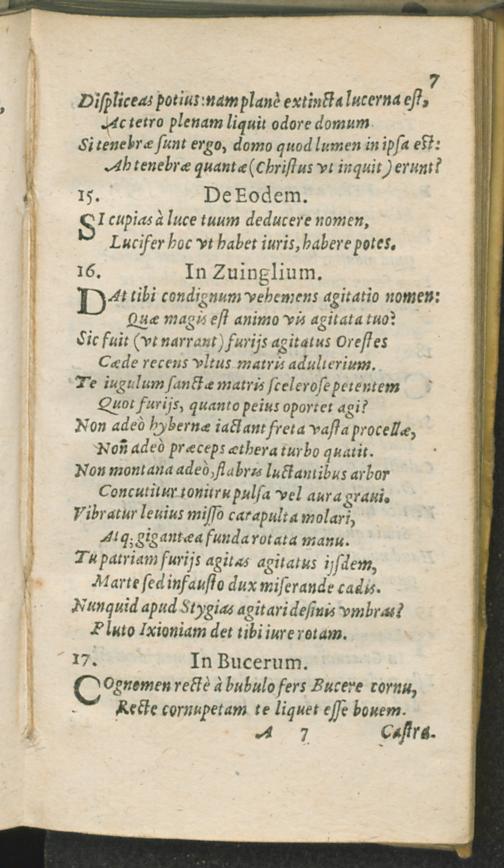 7
Diſpliceas potius: nam planè extincta lucerna eſt,
Ac tetro plenam liquit odore domum.
Si tenebræ ſunt ergo, domo quod lumen in ipſa eſt:
Ah tenebræ quantæ (Chriſtus vt inquit) erunt?
15. De Eodem.
SI cupias à luce tuum deducere nomen,
Lucifer hoc vt habet iuris, habere potes.
16. In Zuinglium.
DAt tibi condignum vehemens agitatio nomen:
Quæ magis eſt animo vis agitata tuo?
Sic fuit (vt narrant) furijs agitatus Oreſtes
Cæde recens vltus matris adulterium.
Te iugulum ſanctæ matris ſceleroſe petentem
Quot furijs, quanto peius oportet agi?
Non adeò hybernæ iactant freta vaſta procellæ,
Non adeò præceps æthera turbo quatit.
Non montana adeò, ſlabris luctantibus arbor
Concutitur tonitru pulſa vel aura graui.
Vibratur leuius miſſo catapulta molari,
Atq; gigantæa funda rotata manu.
Tu patriam furijs agitas agitatus ijſdem,
Marte ſed infauſto dux miſerande cadis.
Nunquid apud Stygias agitari deſinis vmbras?
Pluto Ixioniam det tibi iure rotam.
17. In Bucerum.
COgnomen rectè à bubulo fers Bucere cornu,
Recte cornupetam te liquet eſſe bouem.
A 7 Caſtra.